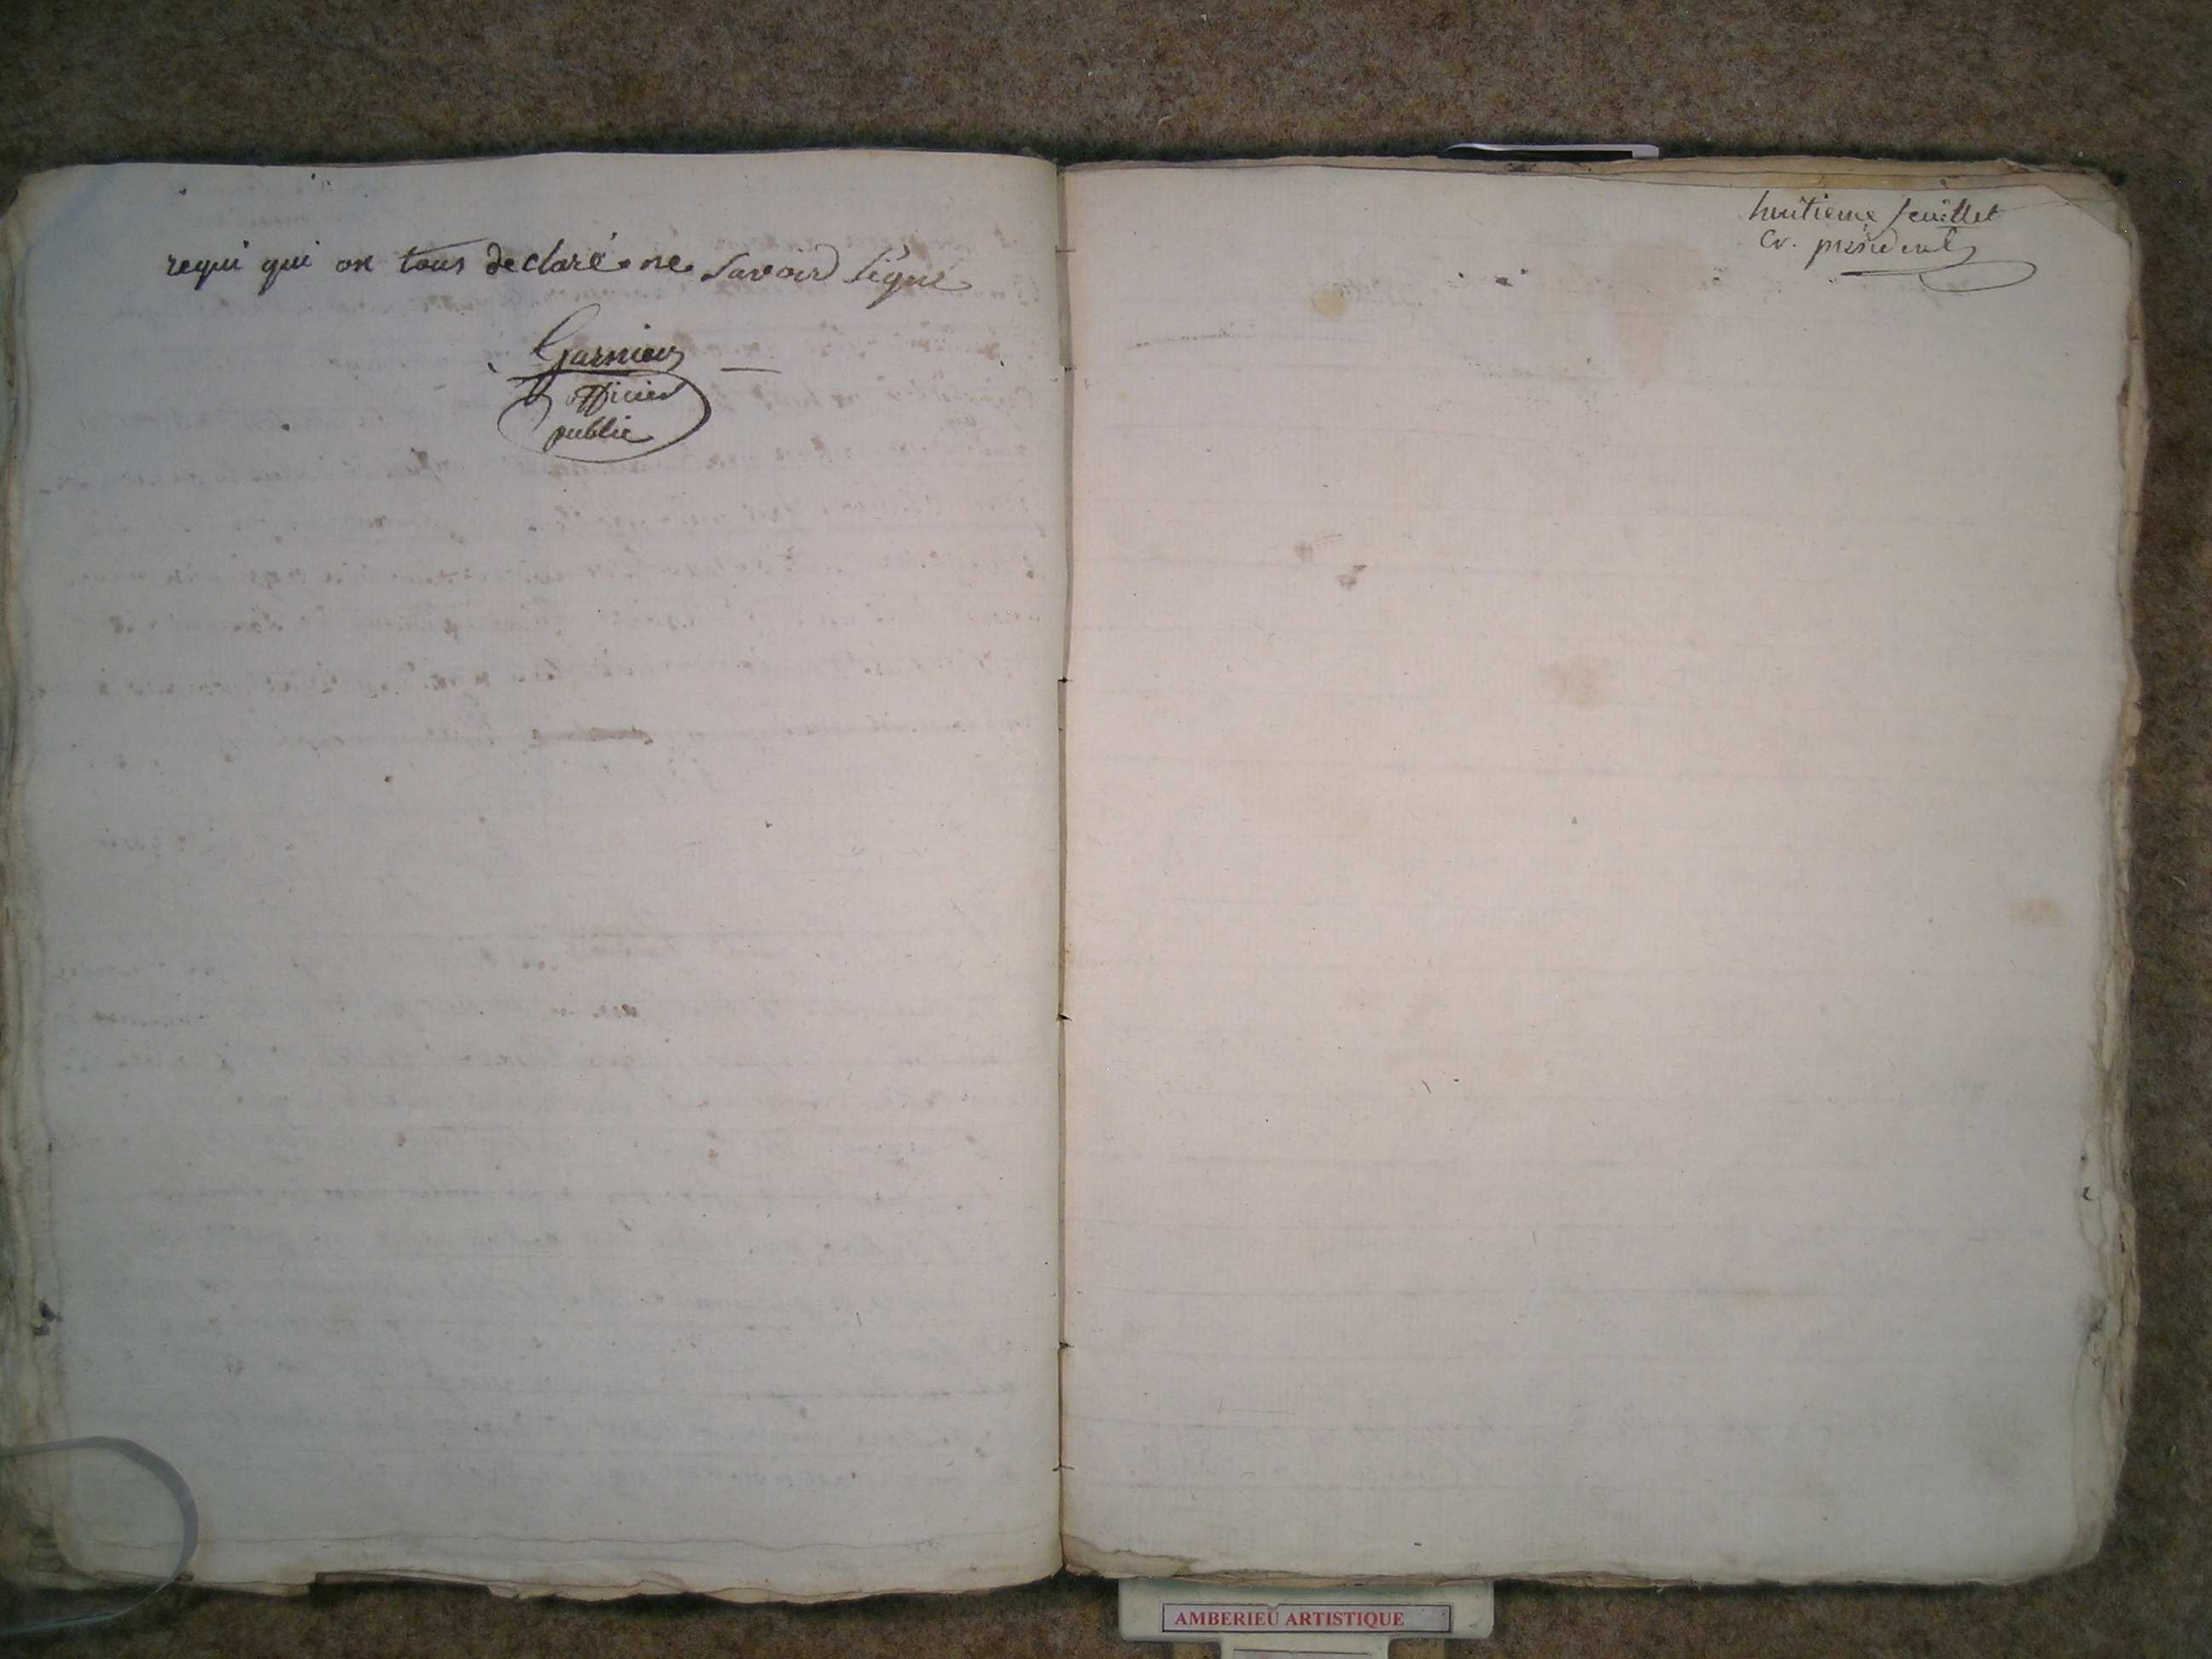 requi qui on tous declaré ne Savoir Signé
Garnier
officier
public
huitieme feuillet
président
AMBERIEU ARTISTIQUE